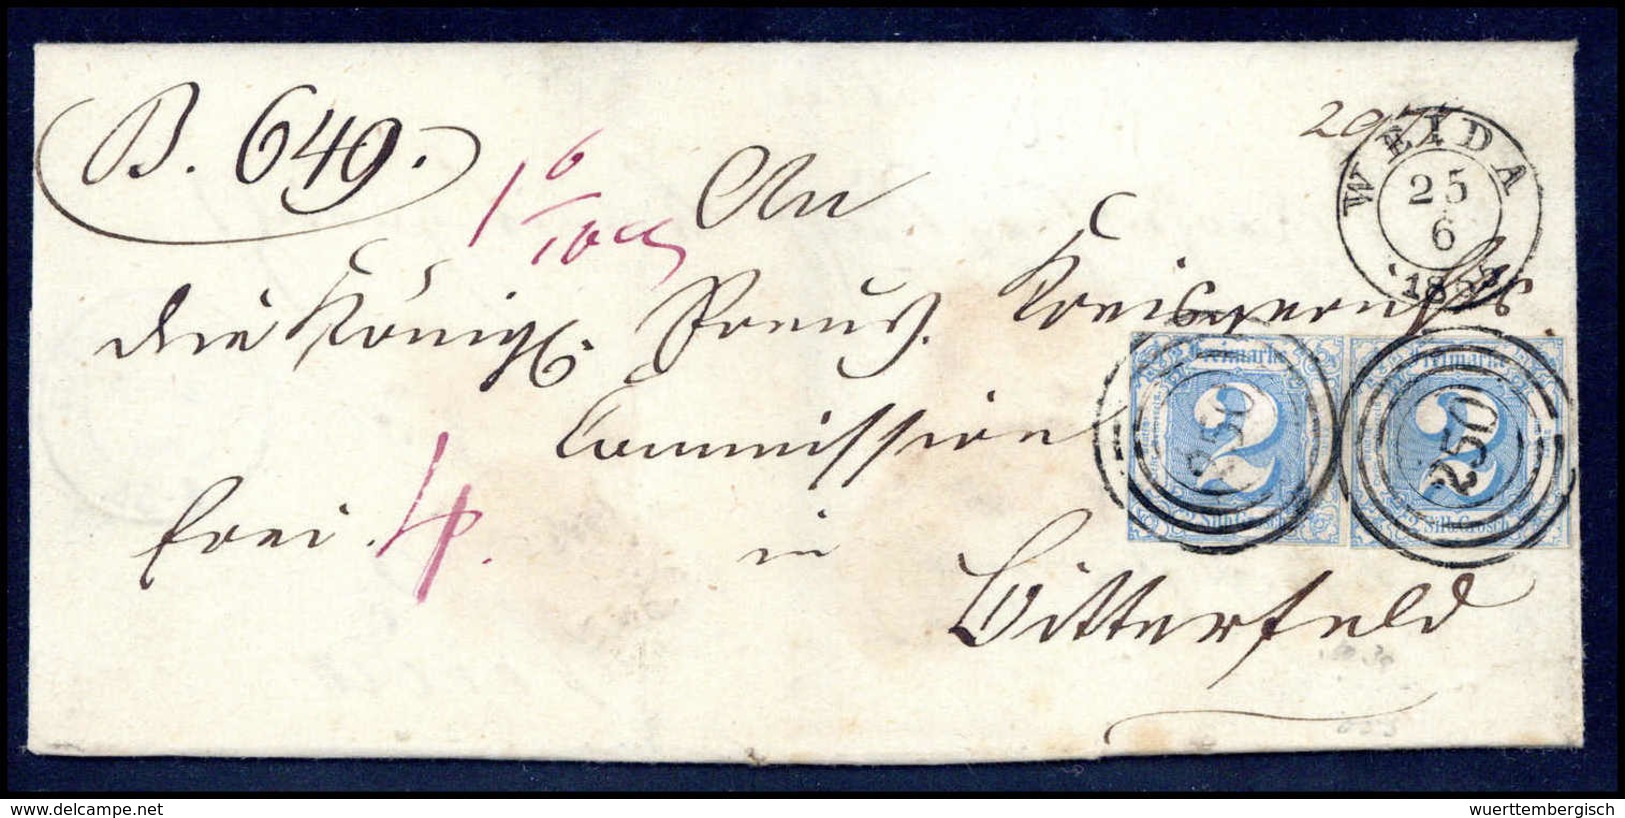 B. 649.
1 6/10
An
die Königl. Preuß. Kreisgerichts
Commission
frei. 4.
in
Bitterfeld
WEIDA
25
6
Freimarke
2
250
Silb. Grosch.
Freimarke
2
250
Silb. Grosch.
delcampe.net
wuerttembergisch